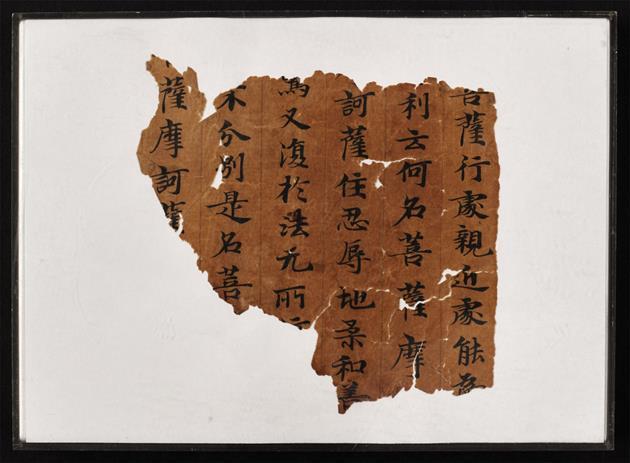 菩薩行處親近處能
利云何名菩薩摩
訶薩住忍辱地柔和善
驚又復於法无所
不分別是名菩
薩摩訶薩